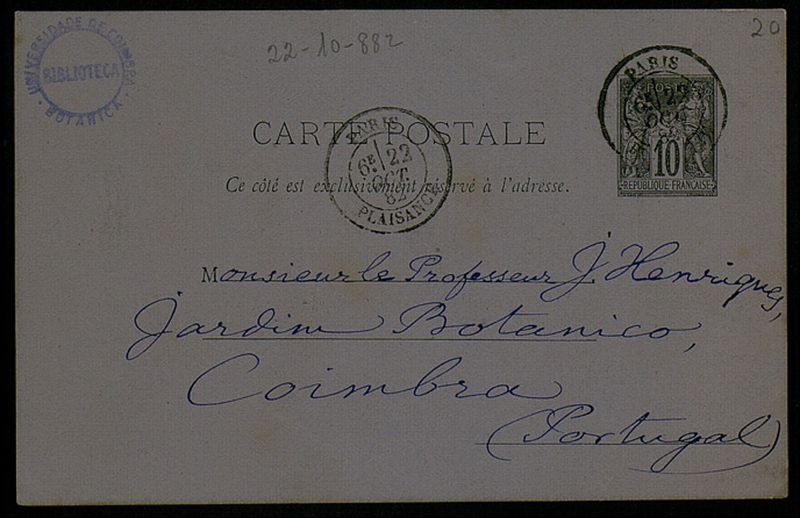 20
22-10-882
UNIVERSIDADE DE COIMBRA
BIBLIOTECA
BOTANICA
PARIS
6E 22
OCT.
10
REPUBLIQUE FRANÇAISE
CARTE POSTALE
PARIS
6E 22
OCT.
82
PLAISANCE
Ce côté est exclusivement réservé à l'adresse.
Monsieur le Professeur J. Henriques,
Jardim Botanico,
Coimbra
(Portugal)